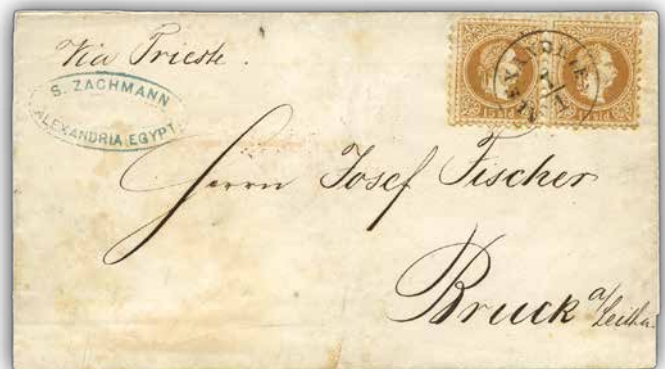 Via Trieste.
S. ZACHMANN
ALEXANDRIA EGYPT
15 sld 15 sld
ALEXANDRIEN
1
Herrn Josef Fischer
Bruck a/Leitha.